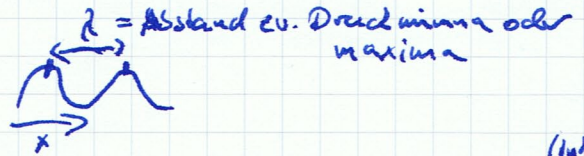 λ = Abstand zw. Druckminima oder
maxima
x